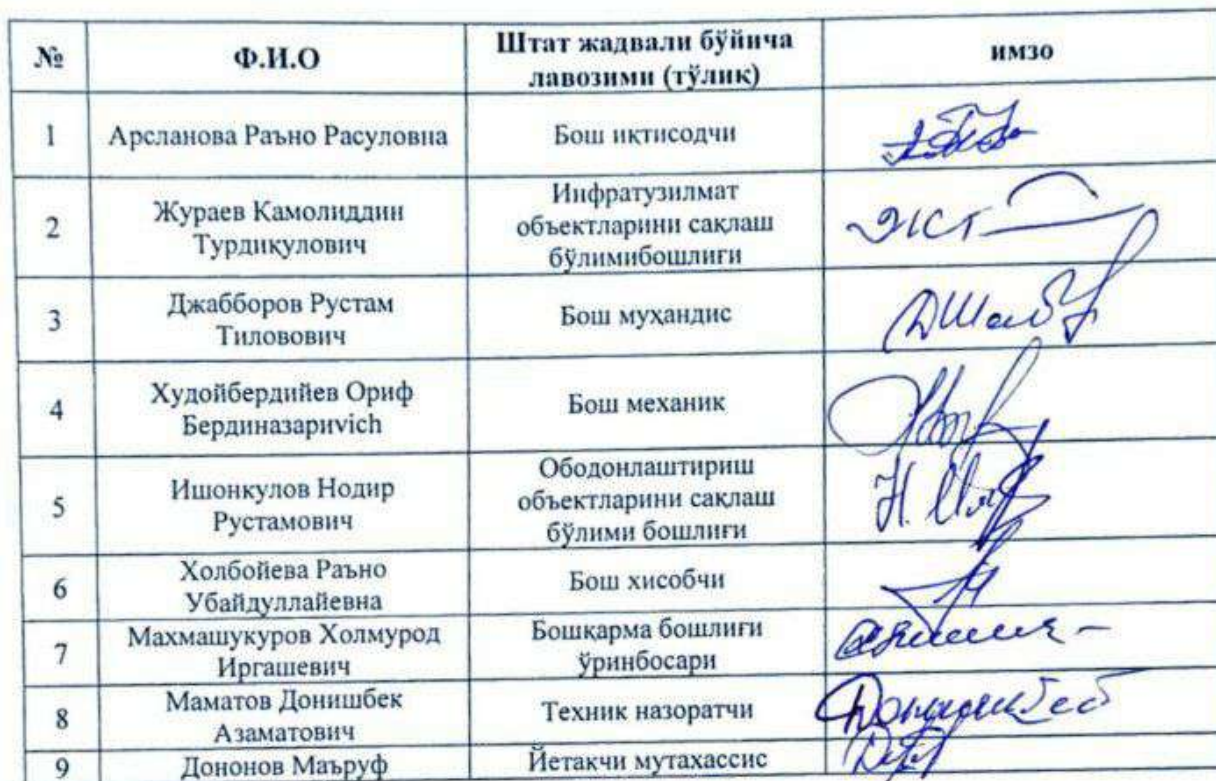 № Ф.И.О Штат жадвали бўйича лавозими (тўлиқ) имзо
1 Арсланова Раъно Расуловна Бош иқтисодчи
2 Жураев Камолиддин Турдиқулович Инфратузилмат объектларини сақлаш бўлимибошлиғи
3 Джабборов Рустам Тиловович Бош муҳандис
4 Худойбердийев Ориф Бердиназариvich Бош механик
5 Ишонкулов Нодир Рустамович Ободонлаштириш объектларини сақлаш бўлими бошлиғи
6 Холбойева Раъно Убайдуллайевна Бош хисобчи
7 Махмашукуров Холмурод Иргашевич Бошқарма бошлиғи ўринбосари
8 Маматов Донишбек Азаматович Техник назоратчи
9 Дононов Маъруф Йетакчи мутахассис